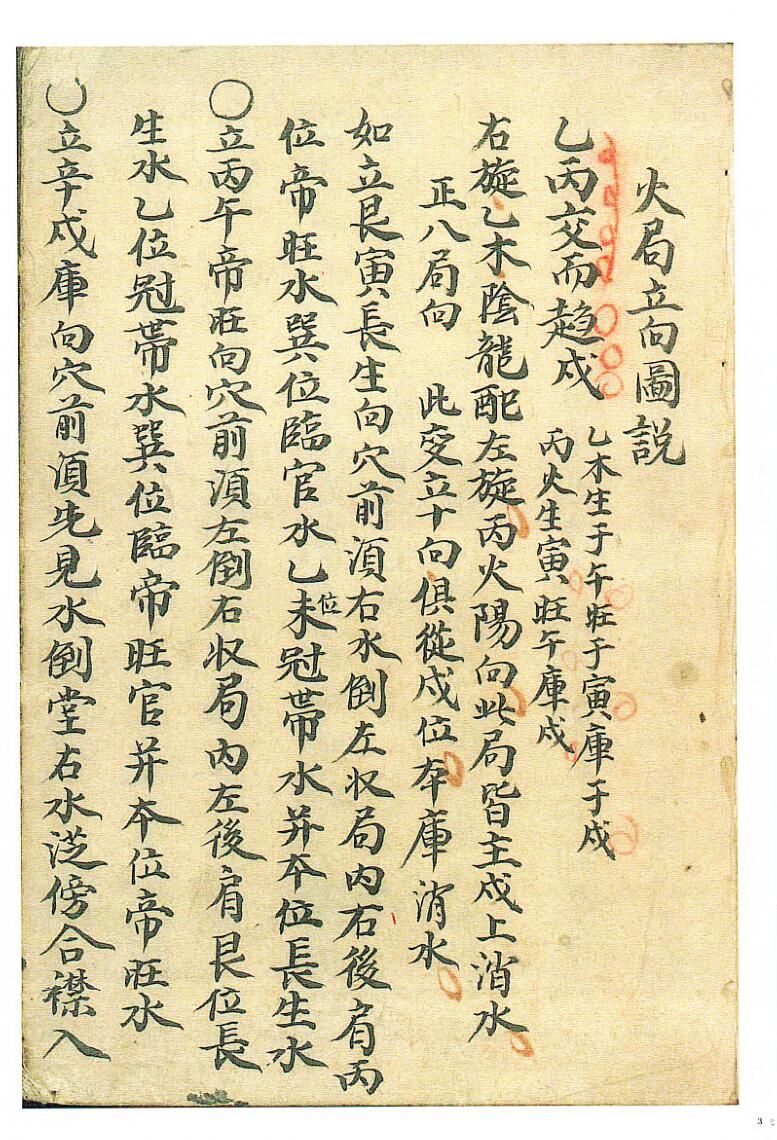 火局立向圖説
乙丙交而趍戍
乙木生于午旺于寅庫于戍
丙火生寅旺午庫戍
右旋乙木陰龍配左旋丙火陽向此局皆主戍上消水
正八局向 此变立十向俱從戍位夲庫消水
如立艮寅長生向穴前湏右水倒左収局内右後肩丙
位帝旺水巽位臨官水乙未位冠帶水并夲位長生水
○立丙午帝旺向穴前湏左倒右収局内左後肩艮位長
生水乙位冠帶水巽位臨帝旺官并夲位帝旺水
○立辛戍庫向穴前湏先見水倒堂右水從傍合襟入
3